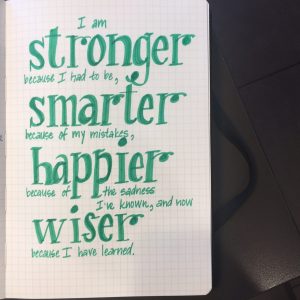 I am
stronger
because I had to be,
smarter
because of my mistakes,
happier
because of the sadness
I've known, and now
wiser
because I have learned.